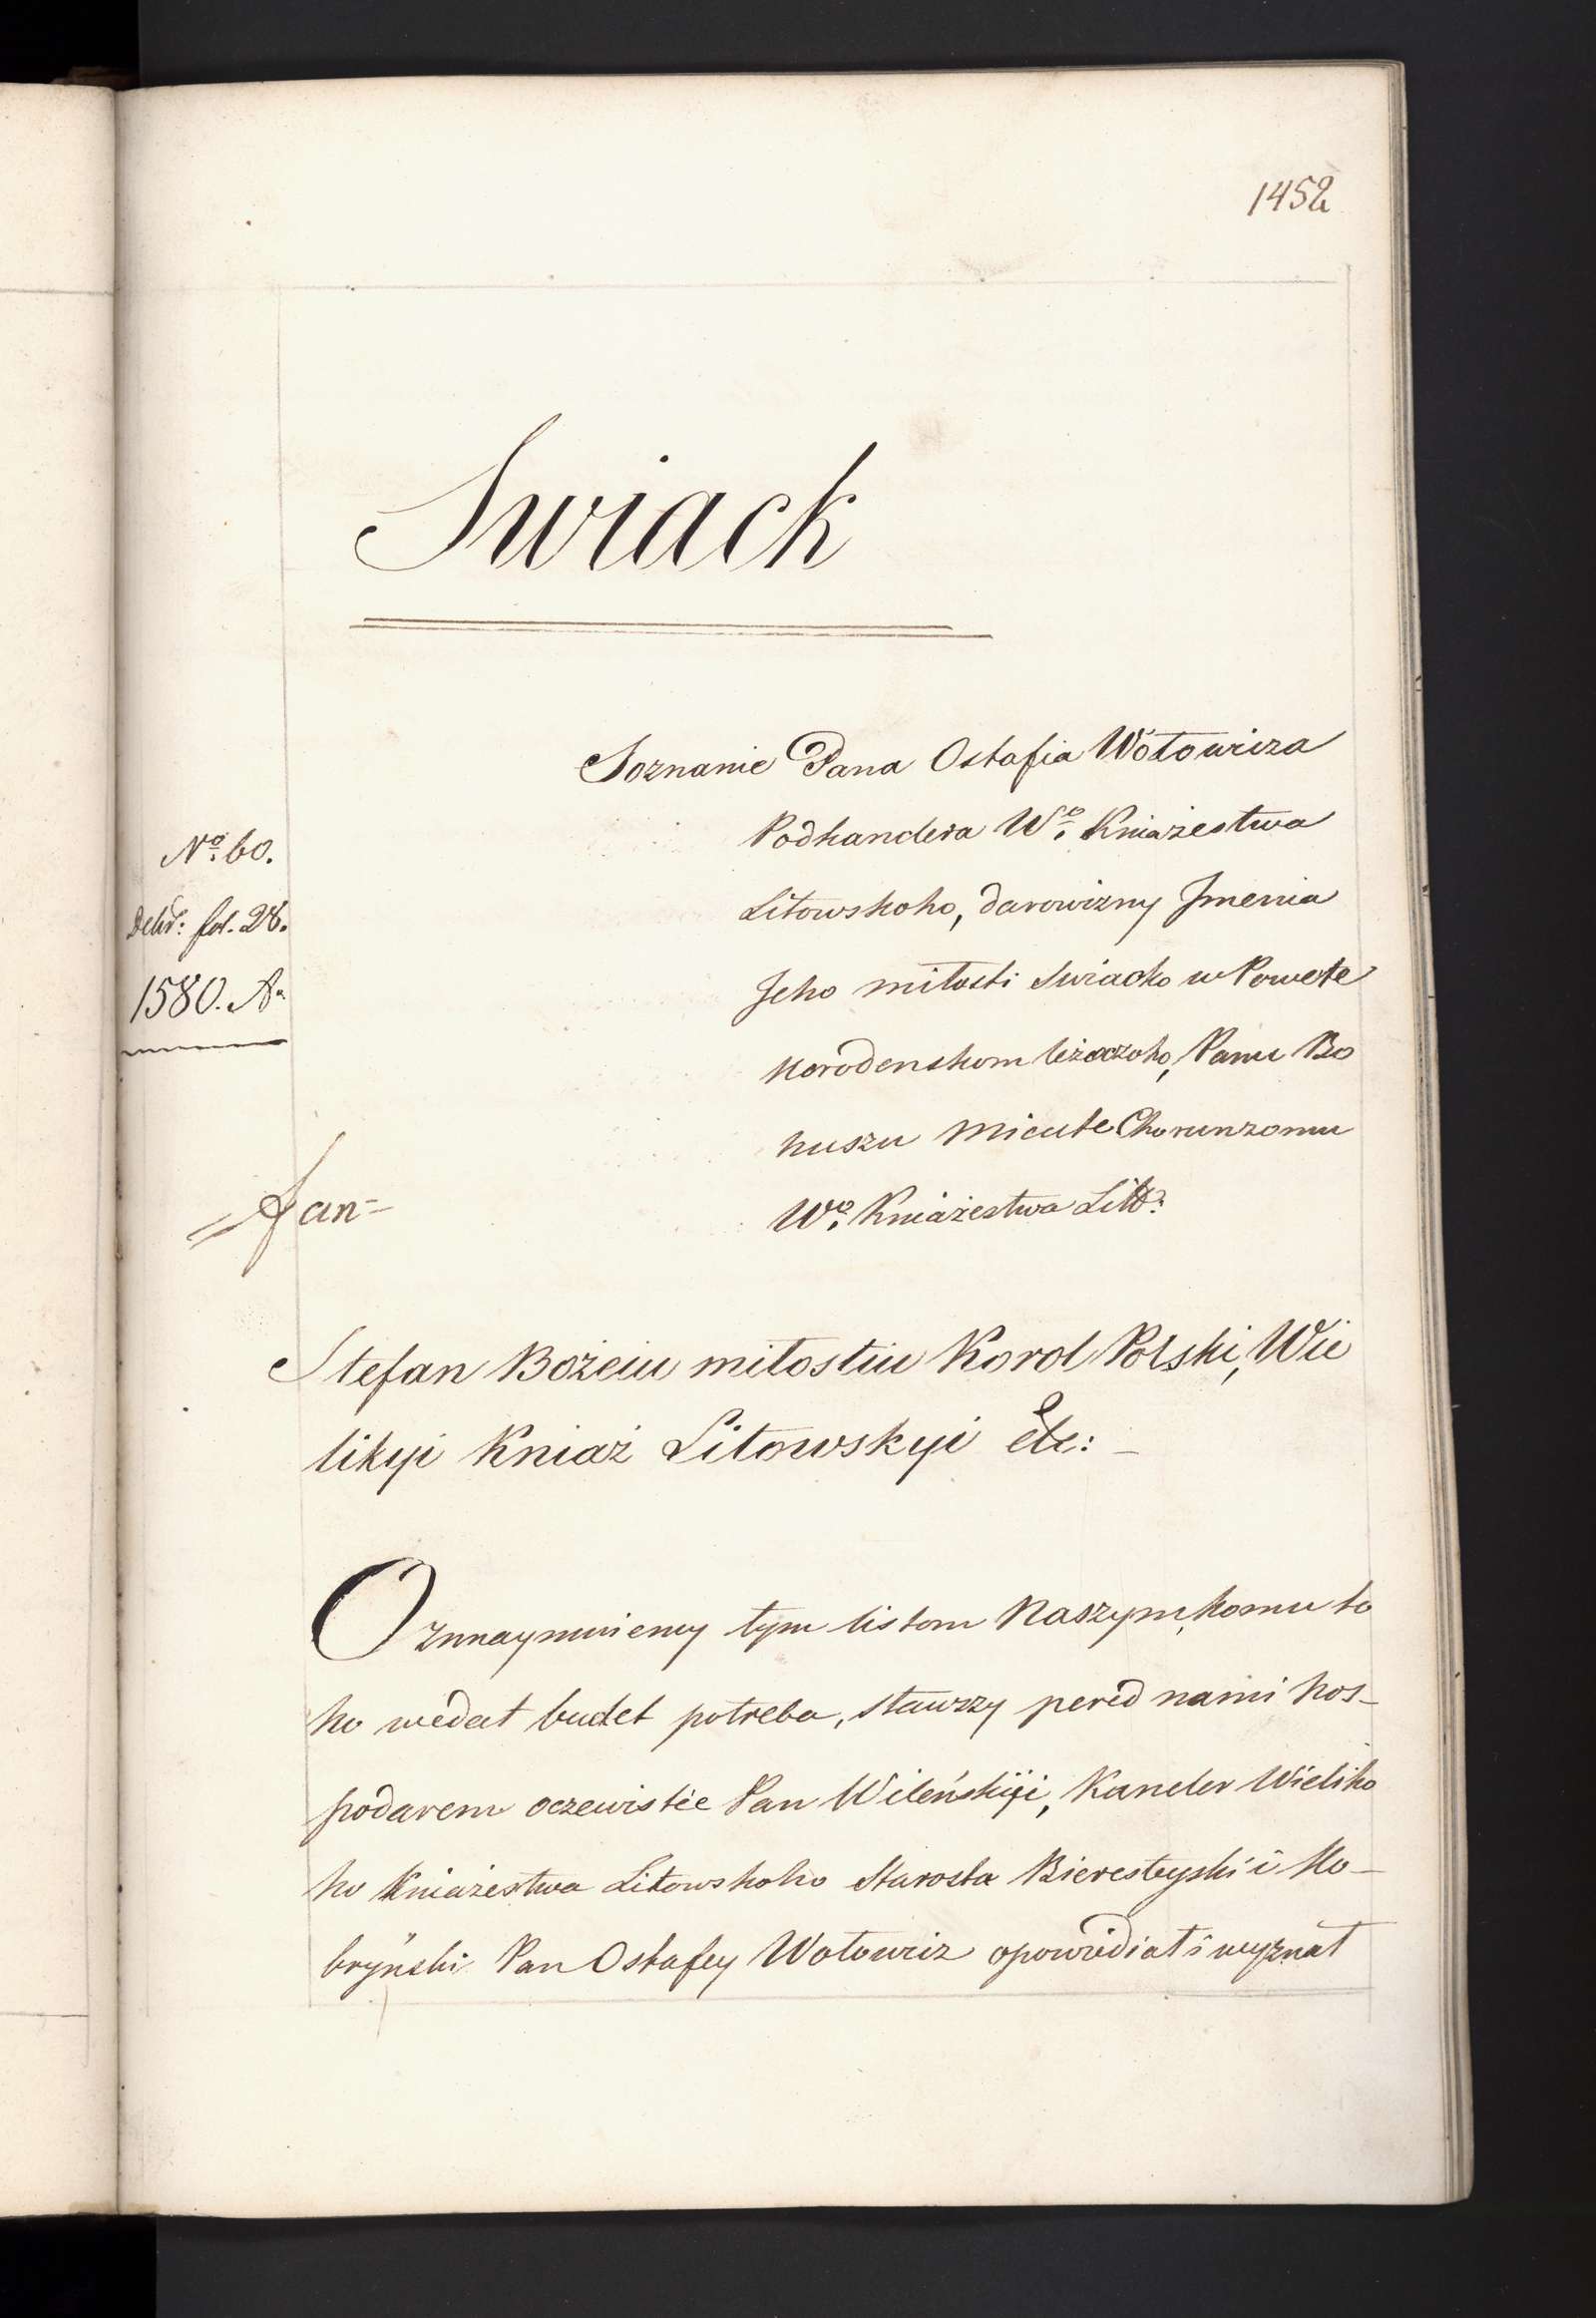 1452
Swiack
Soznanie Pana Ostafia Wołowicza
Podkanclera Wo. Kniażestwa
Litowskoho, darowizny Jmenia
Jeho miłosti Swiacko w Powete
Horodenskom leżaczoho, Panu Bo
huszu Micute Chorunzomu
Wo. Kniażestwa Litt:
No. 60.
fol. 28.
1580. Ao
Stefan Bożeiu miłostiu Korol Polski, Wie
likyi Kniaż Litowskyi etc: _
Oznnaymuiemy tym listom Naszym, komu to
ho wedat budet potreba, stawszy pered nami hos_
podarem oczewistie Pan Wileńskiyi, Kancler Wieliko
ho Kniażestwa Litowskoho Starosta Bieresteyski i Ko_
bryński Pan Ostafey Wołowicz opowidiat i wyznał